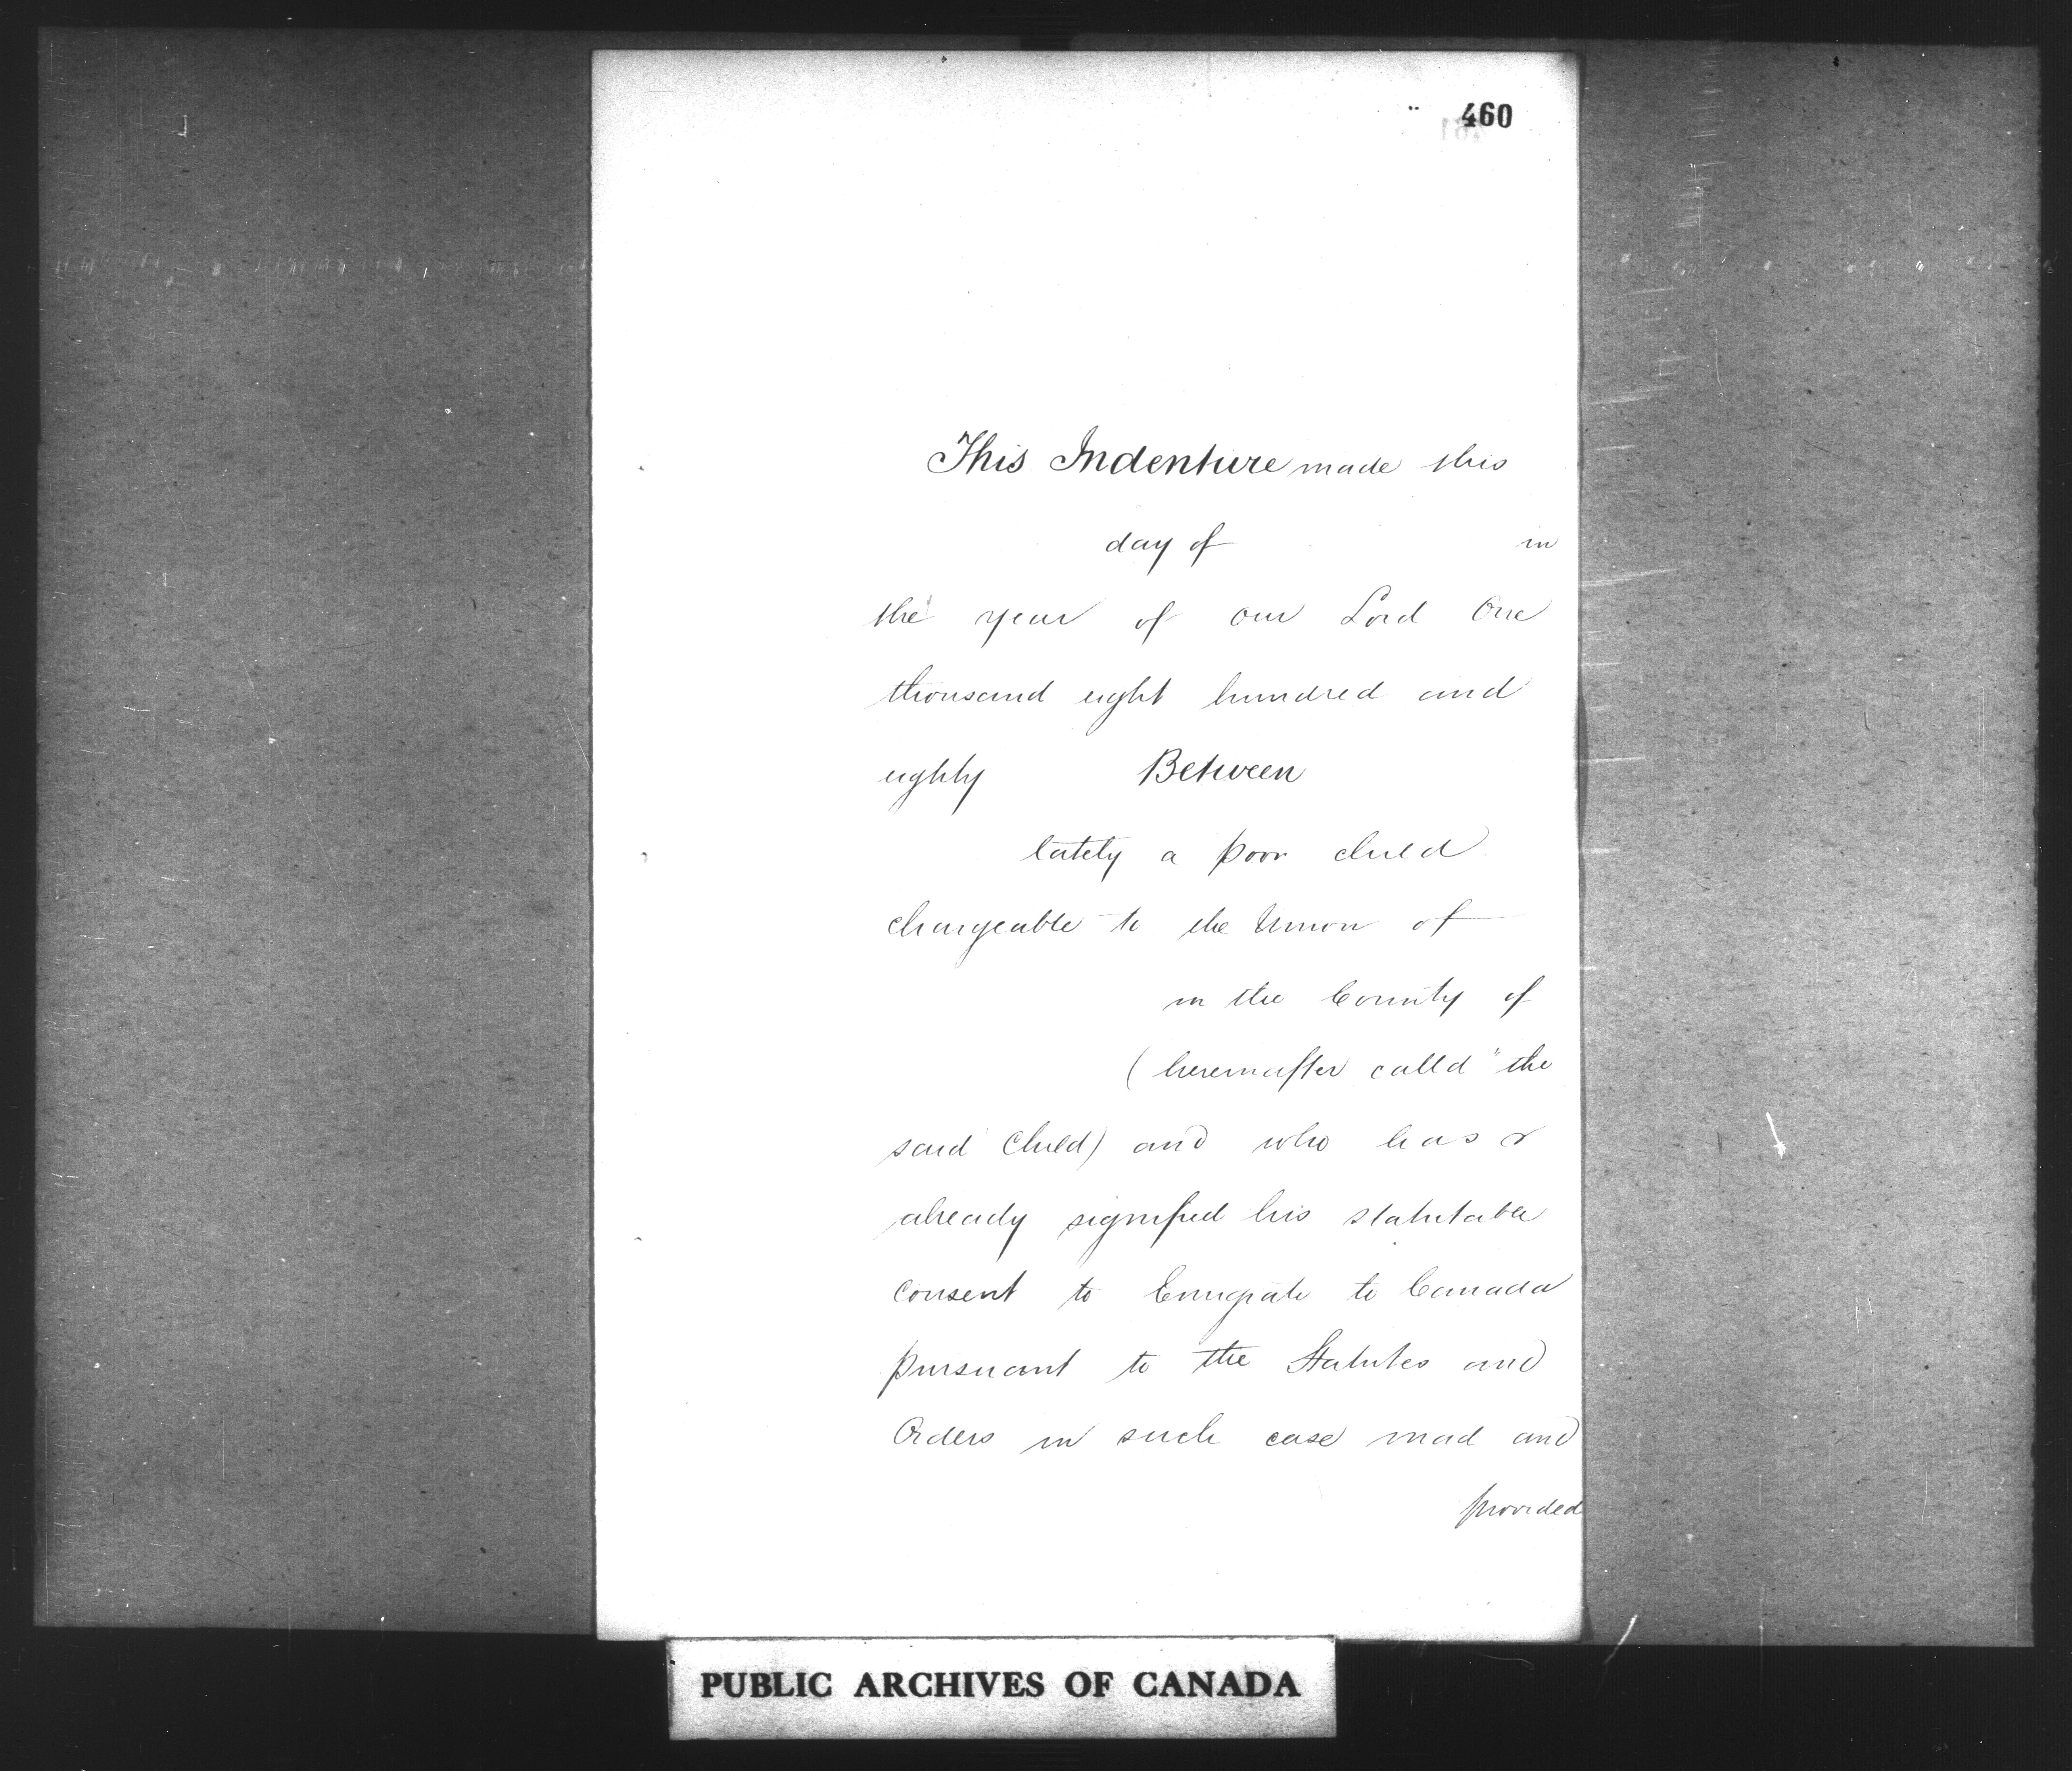 460
This Indenture made this
day of in
the year of our Lord One
thousand eight hundred and
eighty Between
lately a poor child
chargeable to the Union of
in the County of
(hereinafter calld "the
said Child) and who has
already signified his statutable
consent to Emigrate to Canada
pursuant to the Statutes and
Orders in such case mad and
provided
PUBLIC ARCHIVES OF CANADA